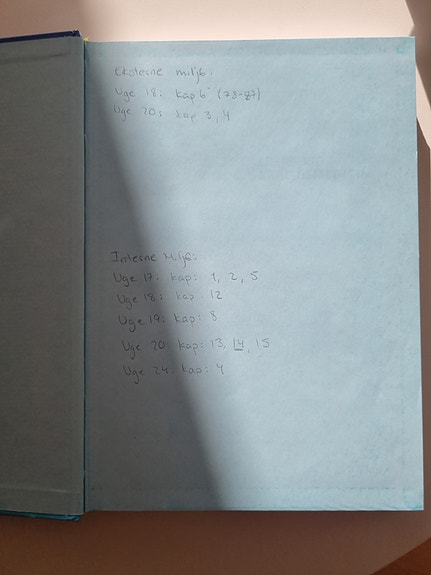 Eksterne miljø:
Uge 18: kap 6 (73-87)
Uge 20: kap 3, 4
Interne Miljø:
Uge 17: kap: 1, 2, 5
Uge 18: kap: 12
Uge 19: kap: 8
Uge 20: kap: 13, 14, 15
Uge 24: kap: 4